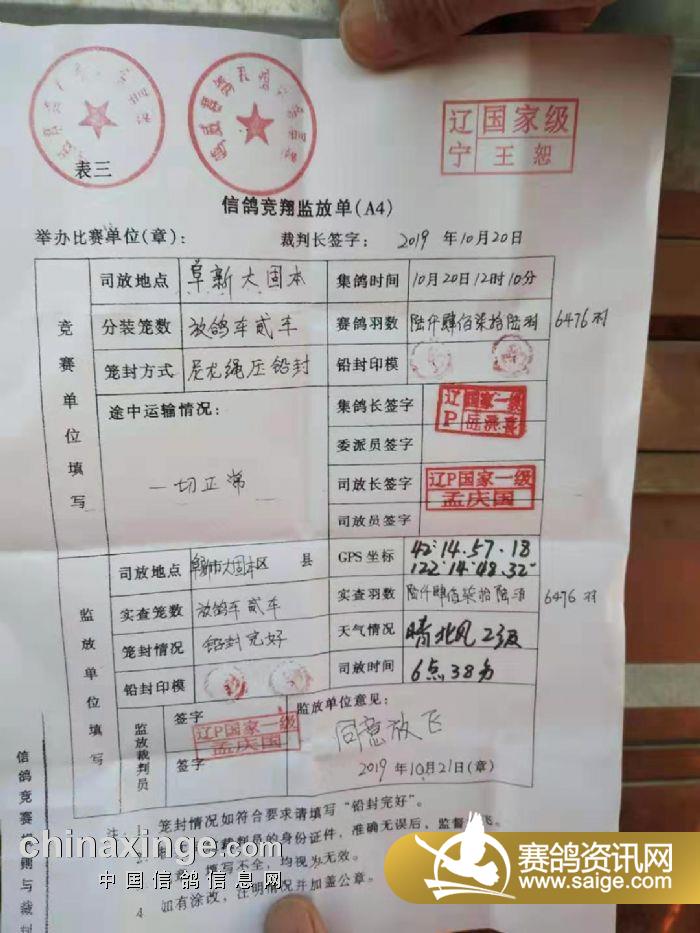 辽宁 国家级 王恕
表三
信鸽竞翔监放单(A4)
举办比赛单位(章): 裁判长签字: 2019 年10月20日
竞赛单位填写
司放地点 阜新大固本 集鸽时间 10月20日12时10分
分装笼数 放鸽车贰车 赛鸽羽数 陆仟肆佰柒拾陆羽 6476羽
笼封方式 尼龙绳压铅封 铅封印模
途中运输情况: 集鸽长签字 辽P 国家一级
委派员签字
一切正常 司放长签字 辽P国家一级 孟庆国
司放员签字
监放单位填写
司放地点 大固本区 县 GPS坐标 42°14.57.18
122°14'48.32"
实查笼数 放鸽车贰车 实查羽数 陆仟肆佰柒拾陆羽 6476羽
笼封情况 铅封完好 天气情况 晴北风2级
铅封印模 司放时间 6点38分
监放裁判员 签字 辽P国家一级 孟庆国 监放单位意见:
同意放飞
签字 2019年10月21日(章)
注: 1 笼封情况如符合要求请填写“铅封完好”。
裁判员的身份证件,准确无误后,监督
填写不全,均视为无效。
4 如有涂改,注明情况并加盖公章。
信鸽竞赛规则与裁判
chinaxinge.com
中国信鸽信息网
赛鸽资讯网
www.saige.com